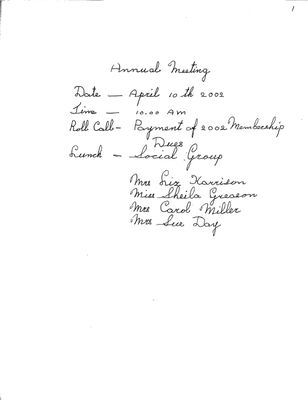 1
Annual Meeting
Date — April 10th 2002
Time — 10.00 AM
Roll Call - Payment of 2002 Membership
Dues
Lunch — Social Group
Mrs Liz Karrison
Miss Sheila Greason
Mrs Carol Miller
Mrs Sue Day